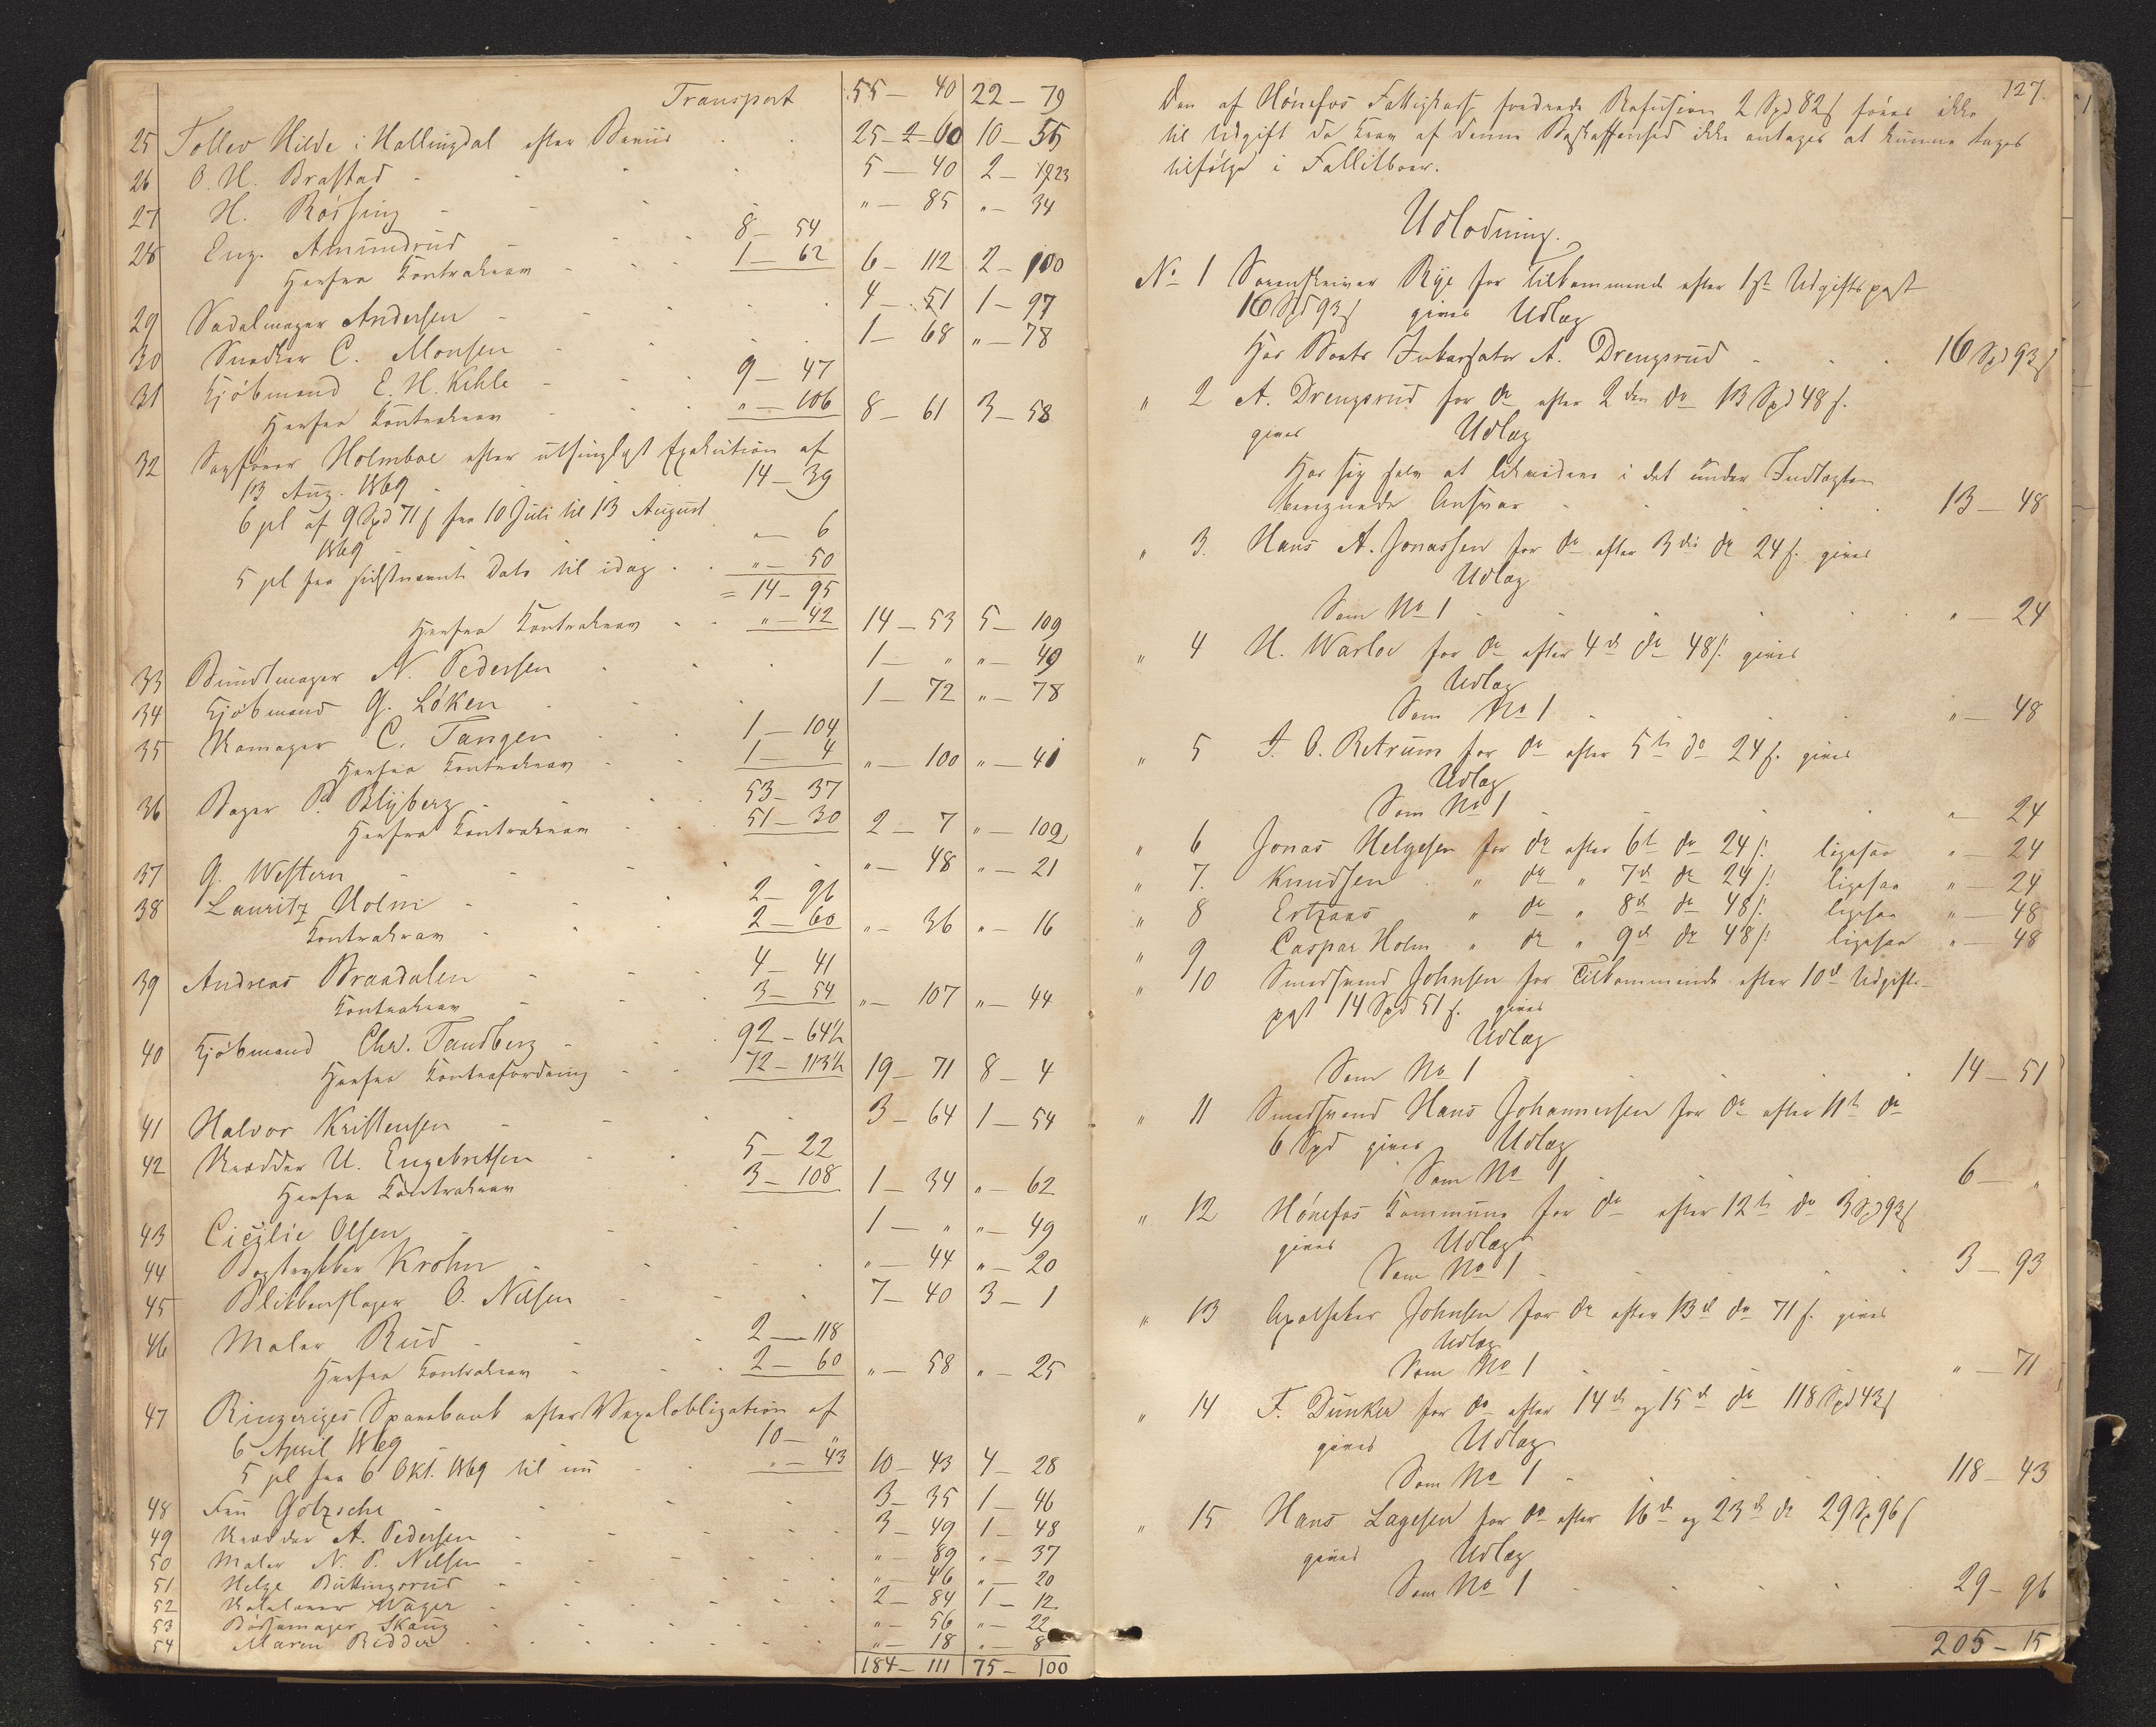 Transport 55 – 40 22 – 79
25 Tollev Hilde i Hallingdal efter Beviis 25 – 60 10 – 55
26 O. H. Brastad 5 – 40 2 – 23
27 H. Röising " – 85 " – 34
28 Eng. Amundrud 8 – 54
Herfra Kontrakrav 1 – 62 6 – 112 2 – 100
29 Sadelmager Andersen 4 – 51 1 – 97
30 Snedker C. Monsen 1 – 68 " – 78
31 Kjöbmand E. H. Kihle 9 – 47
Herfra Kontrakrav " – 106 8 – 61 3 – 58
32 Sagförer Holmboe efter uthinglyst Exekution af
13 Aug. 1869 14 – 39
6 pCt af 9 Spd 71 ß fra 10 Juli til 13 August
1869 " – 6
5 pCt fra sidstnævnte Dato til idag " – 50
= 14 – 95
Herfra Kontrakrav " – 42 14 – 53 5 – 109
33 Bundtmager N. Pedersen 1 – " " – 49
34 Kjöbmand G. Löken 1 – 72 " – 78
35 C. Tangen 1 – 104
Herfra Kontrakrav 1 – 4 " – 100 " – 41
36 Bager P. Blyberg 53 – 37
Herfra Kontrakrav 51 – 30 2 – 7 " – 102
37 G. Western " – 48 " – 21
38 Lauritz Holm 2 – 96
Kontrakrav 2 – 60 " – 36 " – 16
39 Andreas Braadalen 4 – 41
Kontrakrav 3 – 54 " – 107 " – 44
40 Kjöbmand Chr. Tandberg 92 – 64½
Herfra Kontrafordring 72 – 113½ 19 – 71 8 – 4
41 Halvor Kristensen 3 – 64 1 – 54
42 U. Engebretsen 5 – 22
Herfra Kontrakrav 3 – 108 1 – 34 " – 62
43 Cicilie Olsen 1 – " " – 49
44 Bogtrykker Krohn " – 44 " – 20
45 Blikkenslager O. Nilsen 7 – 40 3 – 1
46 Maler Rud 2 – 118
Herfra Kontrakrav 2 – 60 " – 58 " – 25
47 Ringeriges Sparebank efter Vexelobligation af
6 April 1869 10 – "
5 pCt fra 6 Okt. 1869 til nu " – 43 10 – 43 4 – 28
48 Fru Götzsche 3 – 35 1 – 46
49 A. Pedersen 3 – 49 1 – 48
50 Maler N. P. Nilsen " – 89 " – 37
51 Helge Buttingsrud " – 46 " – 20
52 Wager 2 – 84 1 – 12
53 Bössemager Skaug " – 56 " – 22
54 Maren Ridder " – 18 " – 8
184 – 111 75 – 100
127.
Den af Hönefos Fattigkasse fordrede Refusion 2 Spd 82 ß föres ikke
til Udgift da Krav af denne Beskaffenhed ikke antages at kunne tages
tilfölge i Fallitboer.
Udlodning.
No 1 Sorenskriver Rye for Tilkommende efter 1ste Udgiftspost
16 Spd 93 ß gives Udlæg
Hos Boets Inkassator A. Drengsrud 16 Spd 93 ß
" 2 A. Drengsrud for do efter 2den do 13 Spd 48 ß.
gives Udlæg
Hos sig selv at likvidere i det under Indtægten
beregnede Ansvar 13 – 48
" 3. Hans A. Jonassen for do efter 3die do 24 ß. gives
Udlæg
Som No 1 " – 24
" 4 H. Warloe for do efter 4de do 48 ß. gives
Udlæg
Som No 1 " – 48
" 5 O. Retrum for do efter 5te do 24 ß. gives
Udlæg
Som No 1 " – 24
" 6 Jonas Helgesen for do efter 6te do 24 ß. ligesaa " – 24
" 7. Knudsen " do " 7de do 24 ß. ligesaa " – 24
" 8 Ertzaas " do " 8de do 48 ß. ligesaa " – 48
" 9 Caspar Holm " do " 9de do 48 ß. ligesaa " – 48
" 10 Smedsvend Johnsen for Tilkommende efter 10de Udgifts-
post 14 Spd 51 ß. gives
Udlæg
Som No 1 14 – 51
" 11 Smedsvend Hans Johannesen for do efter 11te do
6 Spd gives Udlæg
Som No 1 6 – "
" 12 Hönefos Kommune for do efter 12te do 3 Spd 93 ß
gives Udlæg
Som No 1 3 – 93
" 13 Apotheker Johnsen for do efter 13de do 71 ß. gives
Udlæg
Som No 1 " – 71
" 14 F. Dunker for do efter 14de og 15de do 118 Spd 43 ß
gives Udlæg
Som No 1 118 – 43
" 15 Hans Lagesen for do efter 16de og 23de do 29 Sp 96 ß
gives Udlæg
Som No 1 29 – 96
205 – 15